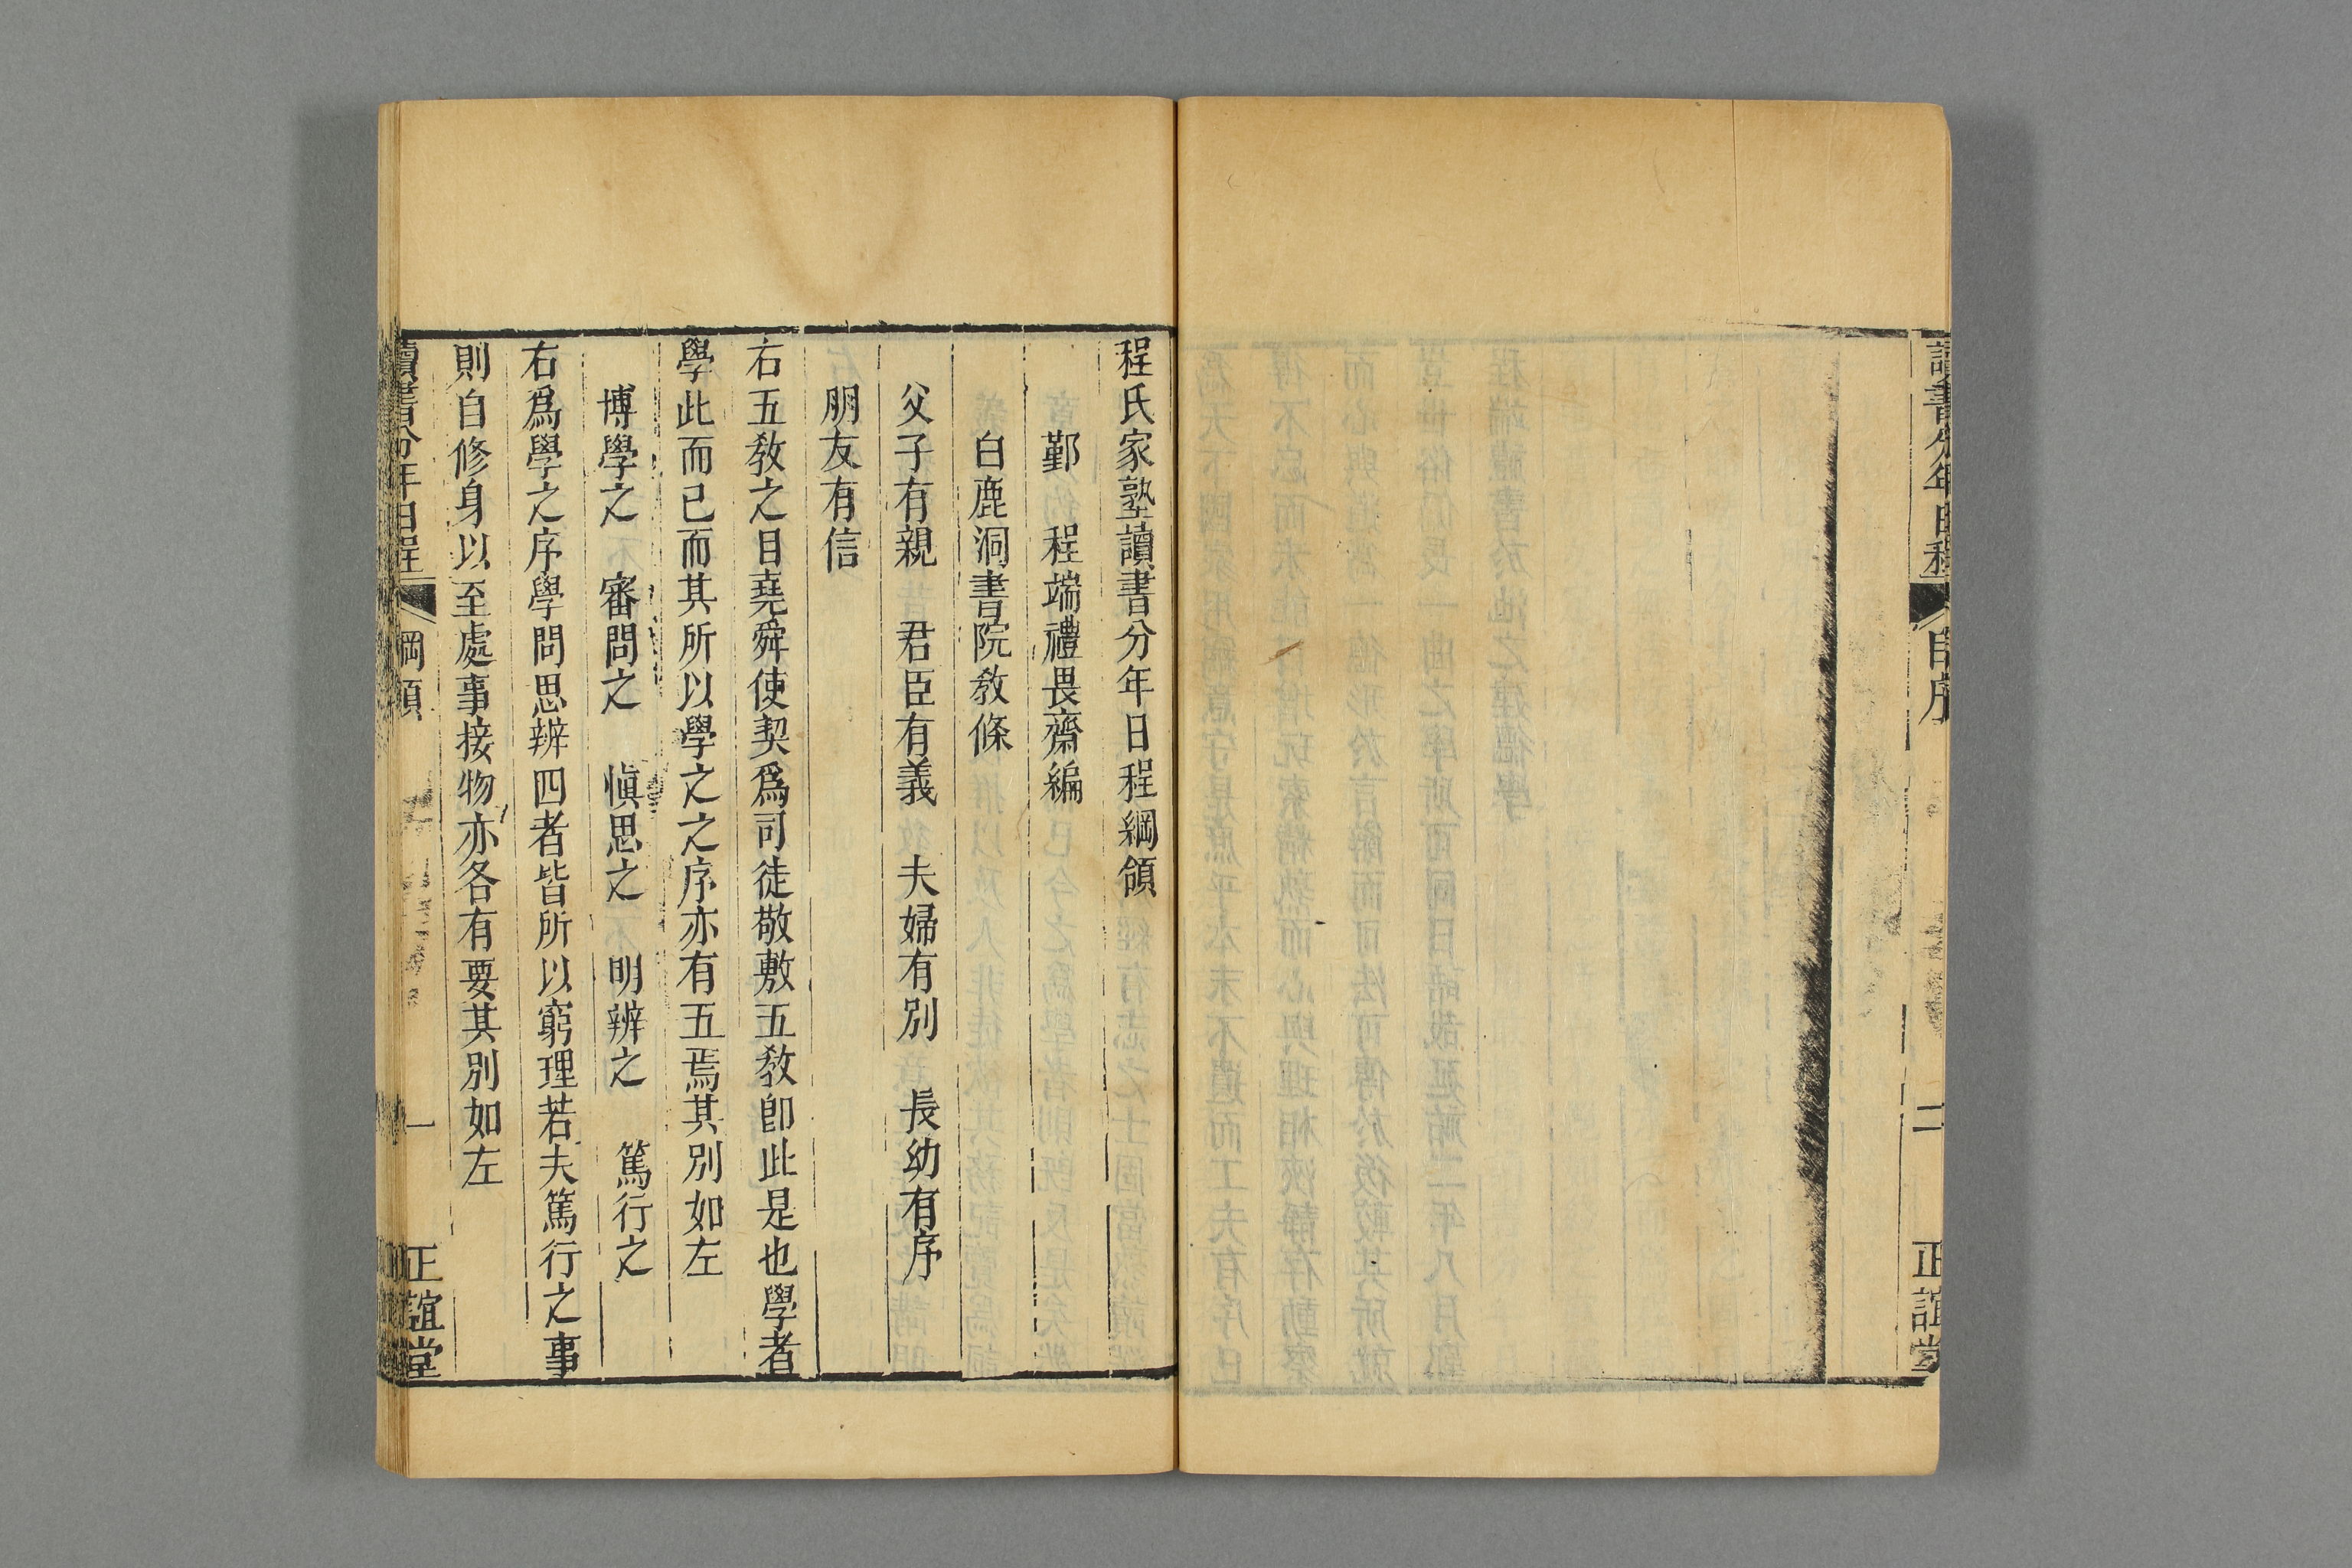 讀書分年日程 自序 二 正誼堂
程氏家塾讀書分年日程綱領
鄞 程端禮畏齋編
白鹿洞書院敎條
父子有親 君臣有義 夫婦有別 長幼有序
朋友有信
右五敎之目堯舜使契爲司徒敬敷五敎卽此是也學者
學此而已而其所以學之之序亦有五焉其別如左
博學之 審問之 愼思之 明辨之 篤行之
右爲學之序學問思辨四者皆所以窮理若夫篤行之事
則自修身以至處事接物亦各有要其別如左
讀書分年日程 綱領 一 正誼堂